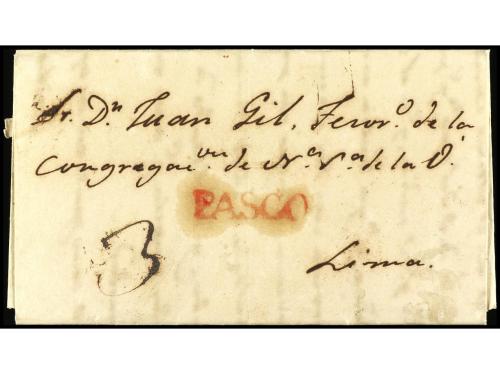 Sr. Dn Juan Gil, Tesor.o de la
Congregaon. de Na. Sa. de la O.
PASCO
3
Lima.